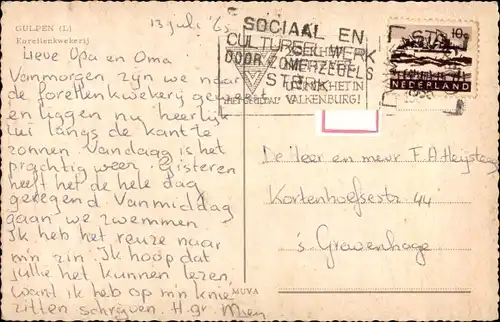 GULPEN (L.)
Forellenkwekerij
13 juli '6
Lieve Opa en Oma.
Vanmorgen zijn we naar
de forellenkwekerij geweest
en liggen nu heerlijk
lui langs de kant te
zonnen. Vandaag is het
prachtig weer. Gisteren
heeft het de hele dag
geregend. Vanmiddag
gaan we zwemmen.
Ik heb het reuze naar
m'n zin. Ik hoop dat
jullie het kunnen lezen,
want ik heb op m'n knie
zitten schrijven. H. gr. Mien
MUVA
SOCIAAL EN
CULTUREEL WERK
DOOR ZOMERZEGELS
STRUIN
HET IN
VALKENBURG!
10c
NEDERLAND
De Heer en mevr F.A.
Kortenhoefsestr 44
's Gravenhage